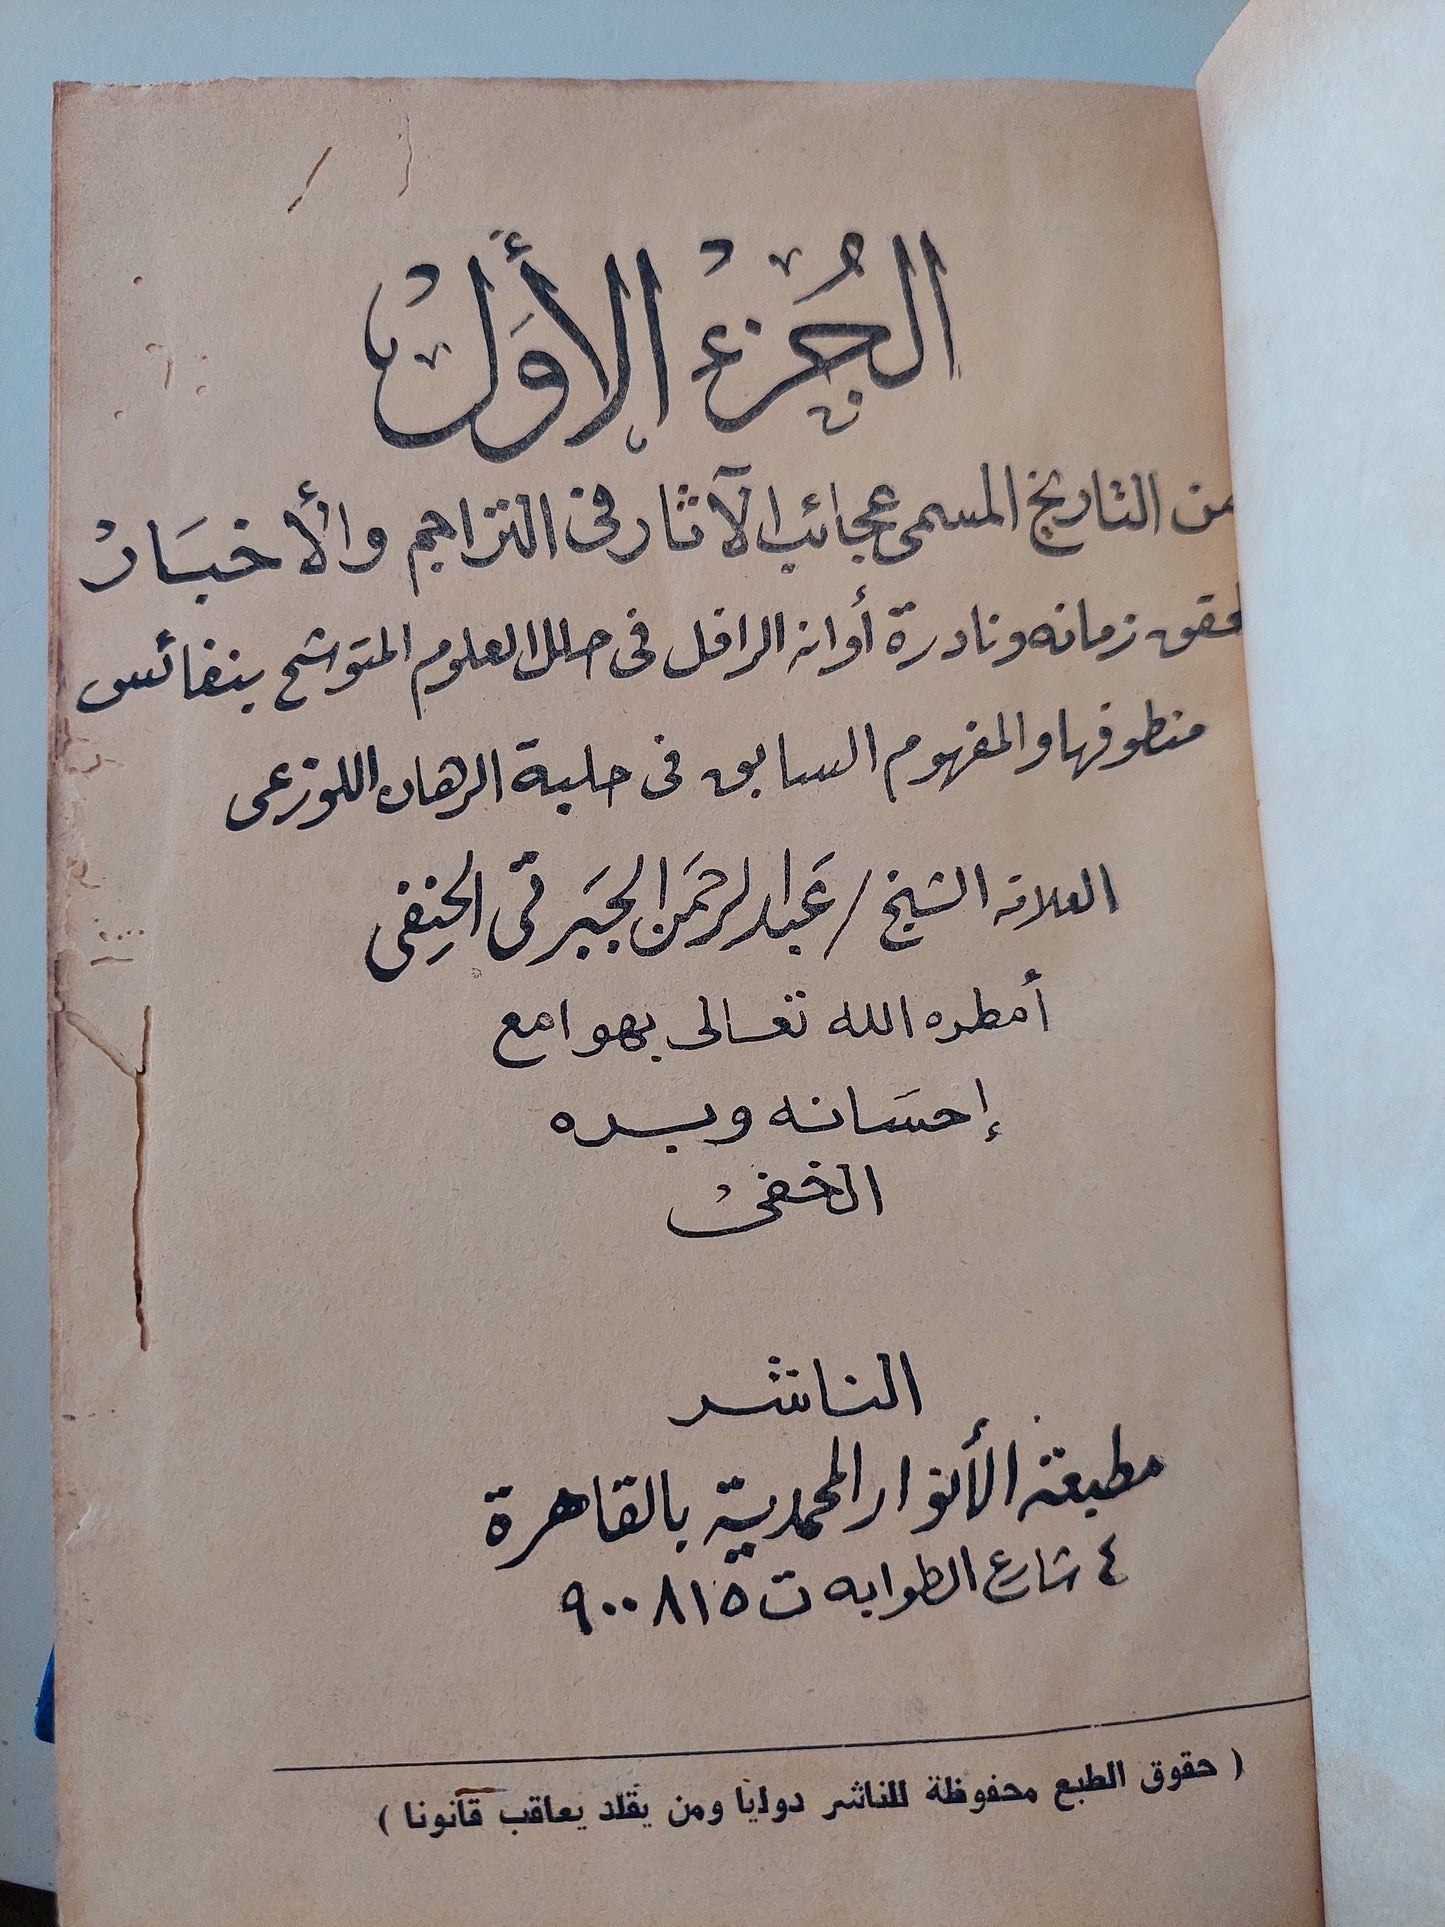 الجُزءْ الأَوَلْ
من التاريخ المسمى عجائب الآثار فى التراجم والأخبَارْ
زمانه ونادرة أوانه الرافل فى حلل العلوم المتوشح بنفائس
منطوفها والمفهوم السابق فى حلبة الرهان اللوزعى
العلامه الشيخ / عَبد الرحمَن الجَبَرتى الحِنفى
أمطره الله تعالى بهوامع
إحسَانه وبره
الخفىْ
الناشر
مطبعة الأنوار المحمدية بالقاهرة
٤ شارع الطوابه ت ٩٠٠٨١٥
( حقوق الطبع محفوظة للناشر دوليا ومن يقلد يعاقب قانونا )